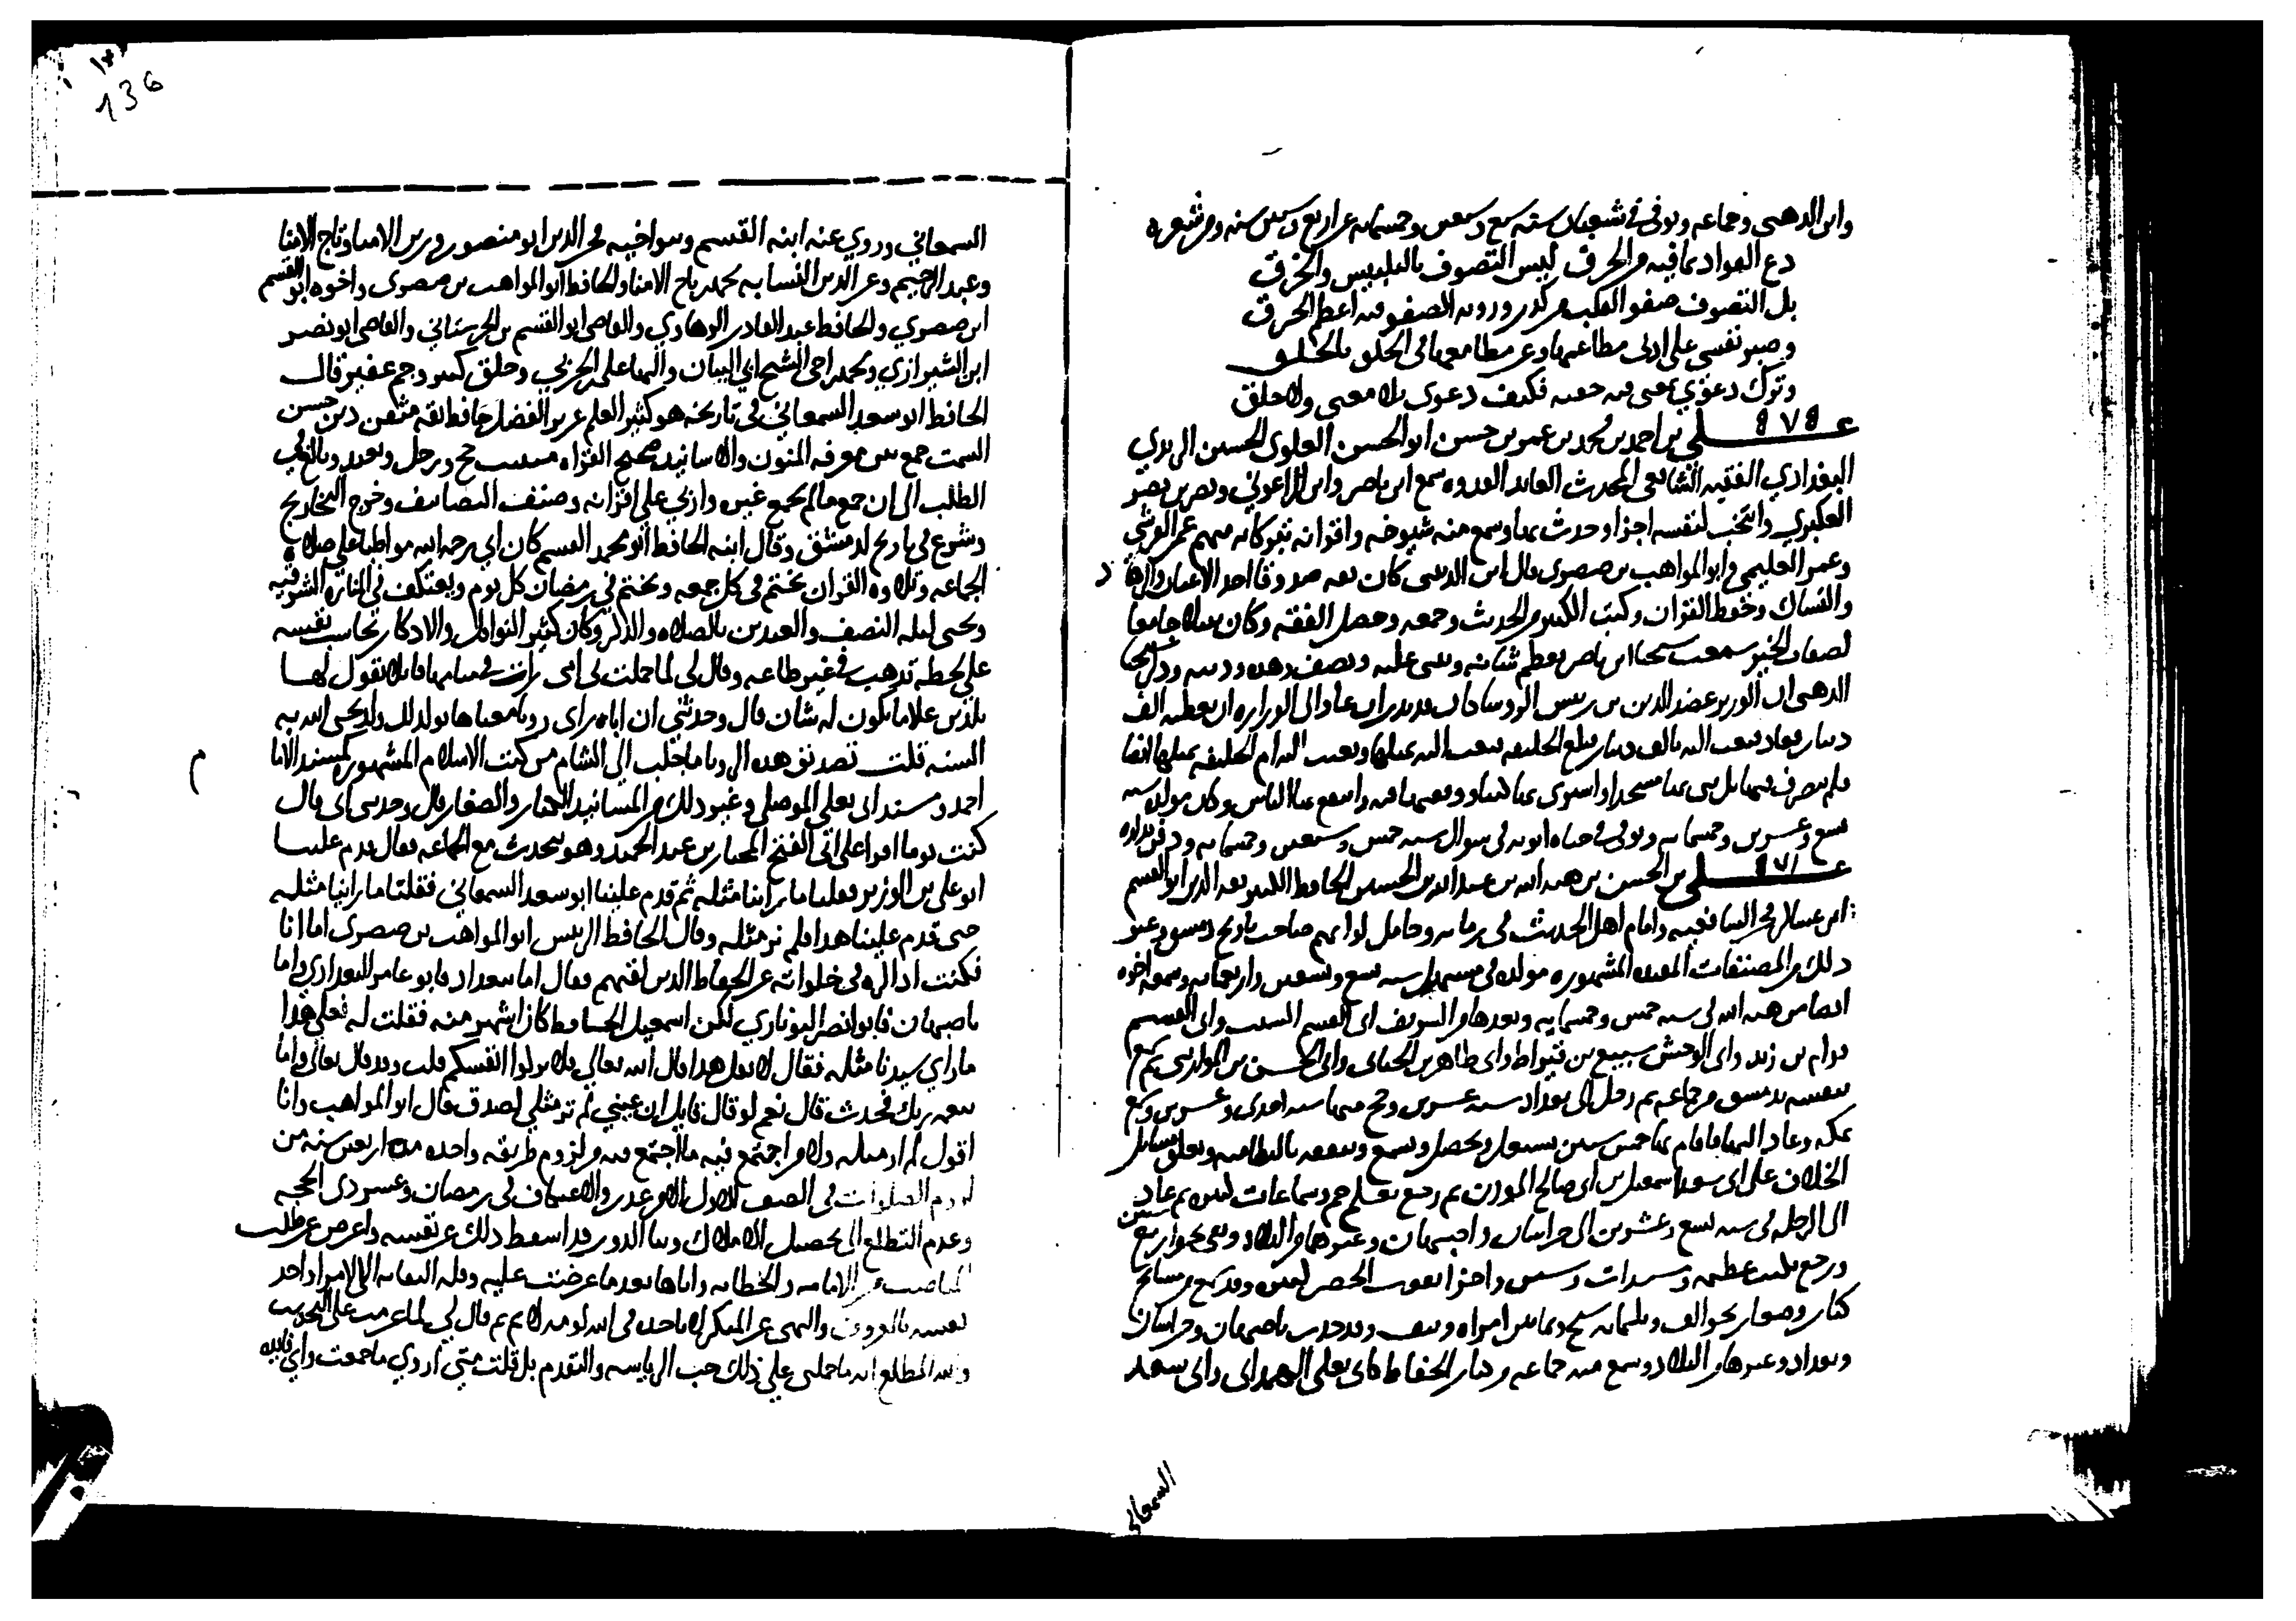 وتوفي في شعبان سنة سبع وسبعين وخمسمائة عن اربع وستين سنة ومن شعره
دع الفواد بما فيه من الحرق ليس التصوف بالتلبيس والخرق
بل التصوف صفو القلب من كدر وروية الصفو فيه اعظم الحرق
وصبر نفس على ادنى مطاعمها وعن مطامعها في الخلق بالخلق
وترك دعوى بمعنى فيه حقيقة فكيف دعوى بلا معنى ولا خلق
علي بن احمد بن محمد بن عمر بن حسن ابو الحسن العلوي الحسيني الزيدي
البغدادي الفقيه الشافعي المحدث العابد القدوة سمع ابن ناصر وابن الزاغوني ونصر بن نصر
العكبري وانتخب لنفسه اجزا وحدث بها وسمع منه شيوخه واقرانه تبركا به منهم عمر القرشي
وعمر العليمي وابو المواهب بن صصرى قال ابن الدبيثي كان ثقة صدوقا احد الاعيان والزهاد
والنساك وحفظ القران وكتب الكثير من الحديث وجمعه وحصل الفقه وكان نبيلا جامعا
لصفات الخير سمعت شيخنا ابن ناصر يعظم شانه ويثني عليه ويصف زهده ودينه وذكر شيخنا
الذهبي ان الوزير عضد الدين بن رئيس الروسا كان نذر ان عاد الى الوزارة ان يعطيه الف
دينار فعاد فبعث اليه بالف دينار فبلغ الخليفة فبعث اليه بمثلها وبعثت اليه ام الخليفة بمثلها ايضا
فلم يتصرف فيها بل بنى بها مسجدا واشترى بها كتبا ووقفها فيه وانتفع بها الناس وكان مولده سنة
تسع وعشرين وخمسمائة وتوفي في حياة ابويه في شوال سنة خمس وسبعين وخمسمائة ودفن بداره
علي بن الحسن بن هبة الله بن عبد الله بن الحسين الحافظ الكبير ثقة الدين ابو القسم
ابن عساكر فخر الشافعية وامام اهل الحديث في زمانه وحامل لوائهم صاحب تاريخ دمشق وغير
ذلك من المصنفات المفيدة المشهورة مولده في مستهل سنة تسع وتسعين واربعمائة وسمعه اخوه
الصاين هبة الله في سنة خمس وخمسمائة وبعدها من الشريف ابي القسم النسيب وابي القسم
قوام بن زيد وابي الوحش سبيع بن قيراط وابي طاهر الحنائي وابي الحسن بن الموازيني ثم سمع
بنفسه بدمشق من جماعة ثم رحل الى بغداد سنة عشرين وحج منها سنة احدى وعشرين وسمع
بمكة وعاد اليها فاقام بها خمس سنين يشتغل ويحصل ويسمع وتفقه بالنظامية وتعلق مسايل
الخلاف على ابي سعد اسمعيل بن ابي صالح الموذن ثم رجع بعلم جم وسماعات كثيرة ثم عاد
الى الرحلة في سنة تسع وعشرين الى خراسان واصبهان وغيرهما من البلاد وبقي نحو اربع سنين
كتاب وصغار نحو الف وثلثمائة شيخ وثمانين امراة ونيف وقد حدث باصبهان وخراسان
وبغداد وغيرها من البلاد وسمع منه جماعة من كبار الحفاظ كابي يعلى الهمداني وابي سعد
السمعاني
136
السمعاني وروى عنه ابنه القسم وبنو اخيه فخر الدين ابو منصور وزين الامنا وتاج الامنا
وعبد الرحيم وعز الدين النسابة محمد بن تاج الامنا والحافظ ابو المواهب بن صصرى واخوه ابو القسم
ابن صصرى والحافظ عبد القادر الرهاوي والقاضي ابو القسم بن الحرستاني والقاضي ابو نصر
ابن الشيرازي ومحمد ابن اخي الشيخ ابي البيان وخلق كثير وجم غفير قال
الحافظ ابو سعد السمعاني في تاريخه هو كثير العلم غزير الفضل حافظ ثقة متقن دين حسن
السمت جمع بين معرفة المتون والاسانيد صحيح القراة متثبت حج ورحل وتعب وبالغ في
الطلب الى ان جمع ما لم يجمع غيره واربى على اقرانه وصنف التصانيف وخرج التخاريج
وشرع في تاريخ لدمشق وقال ابنه الحافظ ابو محمد القسم كان ابي رحمه الله مواظبا على صلاة
الجماعة وتلاوة القران يختم في كل جمعة ويختم في رمضان كل يوم ويعتكف في المنارة الشرقية
ويحيي ليلة النصف والعيدين بالصلاة والذكر وكان كثير النوافل والاذكار يحاسب نفسه
على لحظة تذهب في غير طاعة وقال لي لما حملت بي امي رات في منامها قايلا يقول لها
تلدين غلاما يكون له شان قال وحدثني ان اباه راى رويا معناها يولد لك ولد يحيي الله به
السنة قلت تصديق هذه الرويا ما جلب الى الشام من كتب الاسلام المشهورة كمسند الامام
احمد ومسند ابي يعلى الموصلي وغير ذلك من المسانيد الكبار والصغار قال وحدثني ابي قال
كنت يوما اقرا على ابي الفتح المختار بن عبد الحميد وهو يتحدث مع الجماعة فقال قدم علينا
ابو علي بن الوزير فقلنا ما راينا مثله ثم قدم علينا ابو سعد السمعاني فقلنا ما راينا مثله
حتى قدم علينا هذا فلم نر مثله وقال الحافظ الرئيس ابو المواهب بن صصرى اما انا
فكنت اذاكره في خلواته عن الحفاظ الذين لقيهم فقال اما ببغداد فابو عامر العبدري واما
باصبهان فابو نصر اليونارتي لكن اسمعيل الحافظ كان اشهر منه فقلت له فعلى هذا
ما راى سيدنا مثله فقال لا تقل هذا قال الله تعالى فلا تزكوا انفسكم قلت وقد قال تعالى واما
بنعمة ربك فحدث قال نعم لو قال قايل ان عيني لم تر مثلي لصدق قال ابو المواهب وانا
اقول لم ار مثله ولا من اجتمع فيه ما اجتمع فيه من لزوم طريقة واحدة مدة اربعين سنة من
لزوم الصلوات في الصف الاول الا من عذر والاعتكاف في رمضان وعشر ذي الحجة
وعدم التطلع الى تحصيل الاملاك وبنا الدور قد اسقط ذلك عن نفسه واعرض عن طلب
المناصب من الامامة والخطابة واباها بعد ما عرضت عليه وقلة التفاته الى الامرا واخذ
نفسه بالامر بالمعروف والنهي عن المنكر لا تاخذه في الله لومة لايم ثم قال لي لما عزمت على التحديث
والله المطلع انه ما حملني على ذلك حب الرياسة والتقدم بل قلت متى اروي ما سمعت واي فايدة